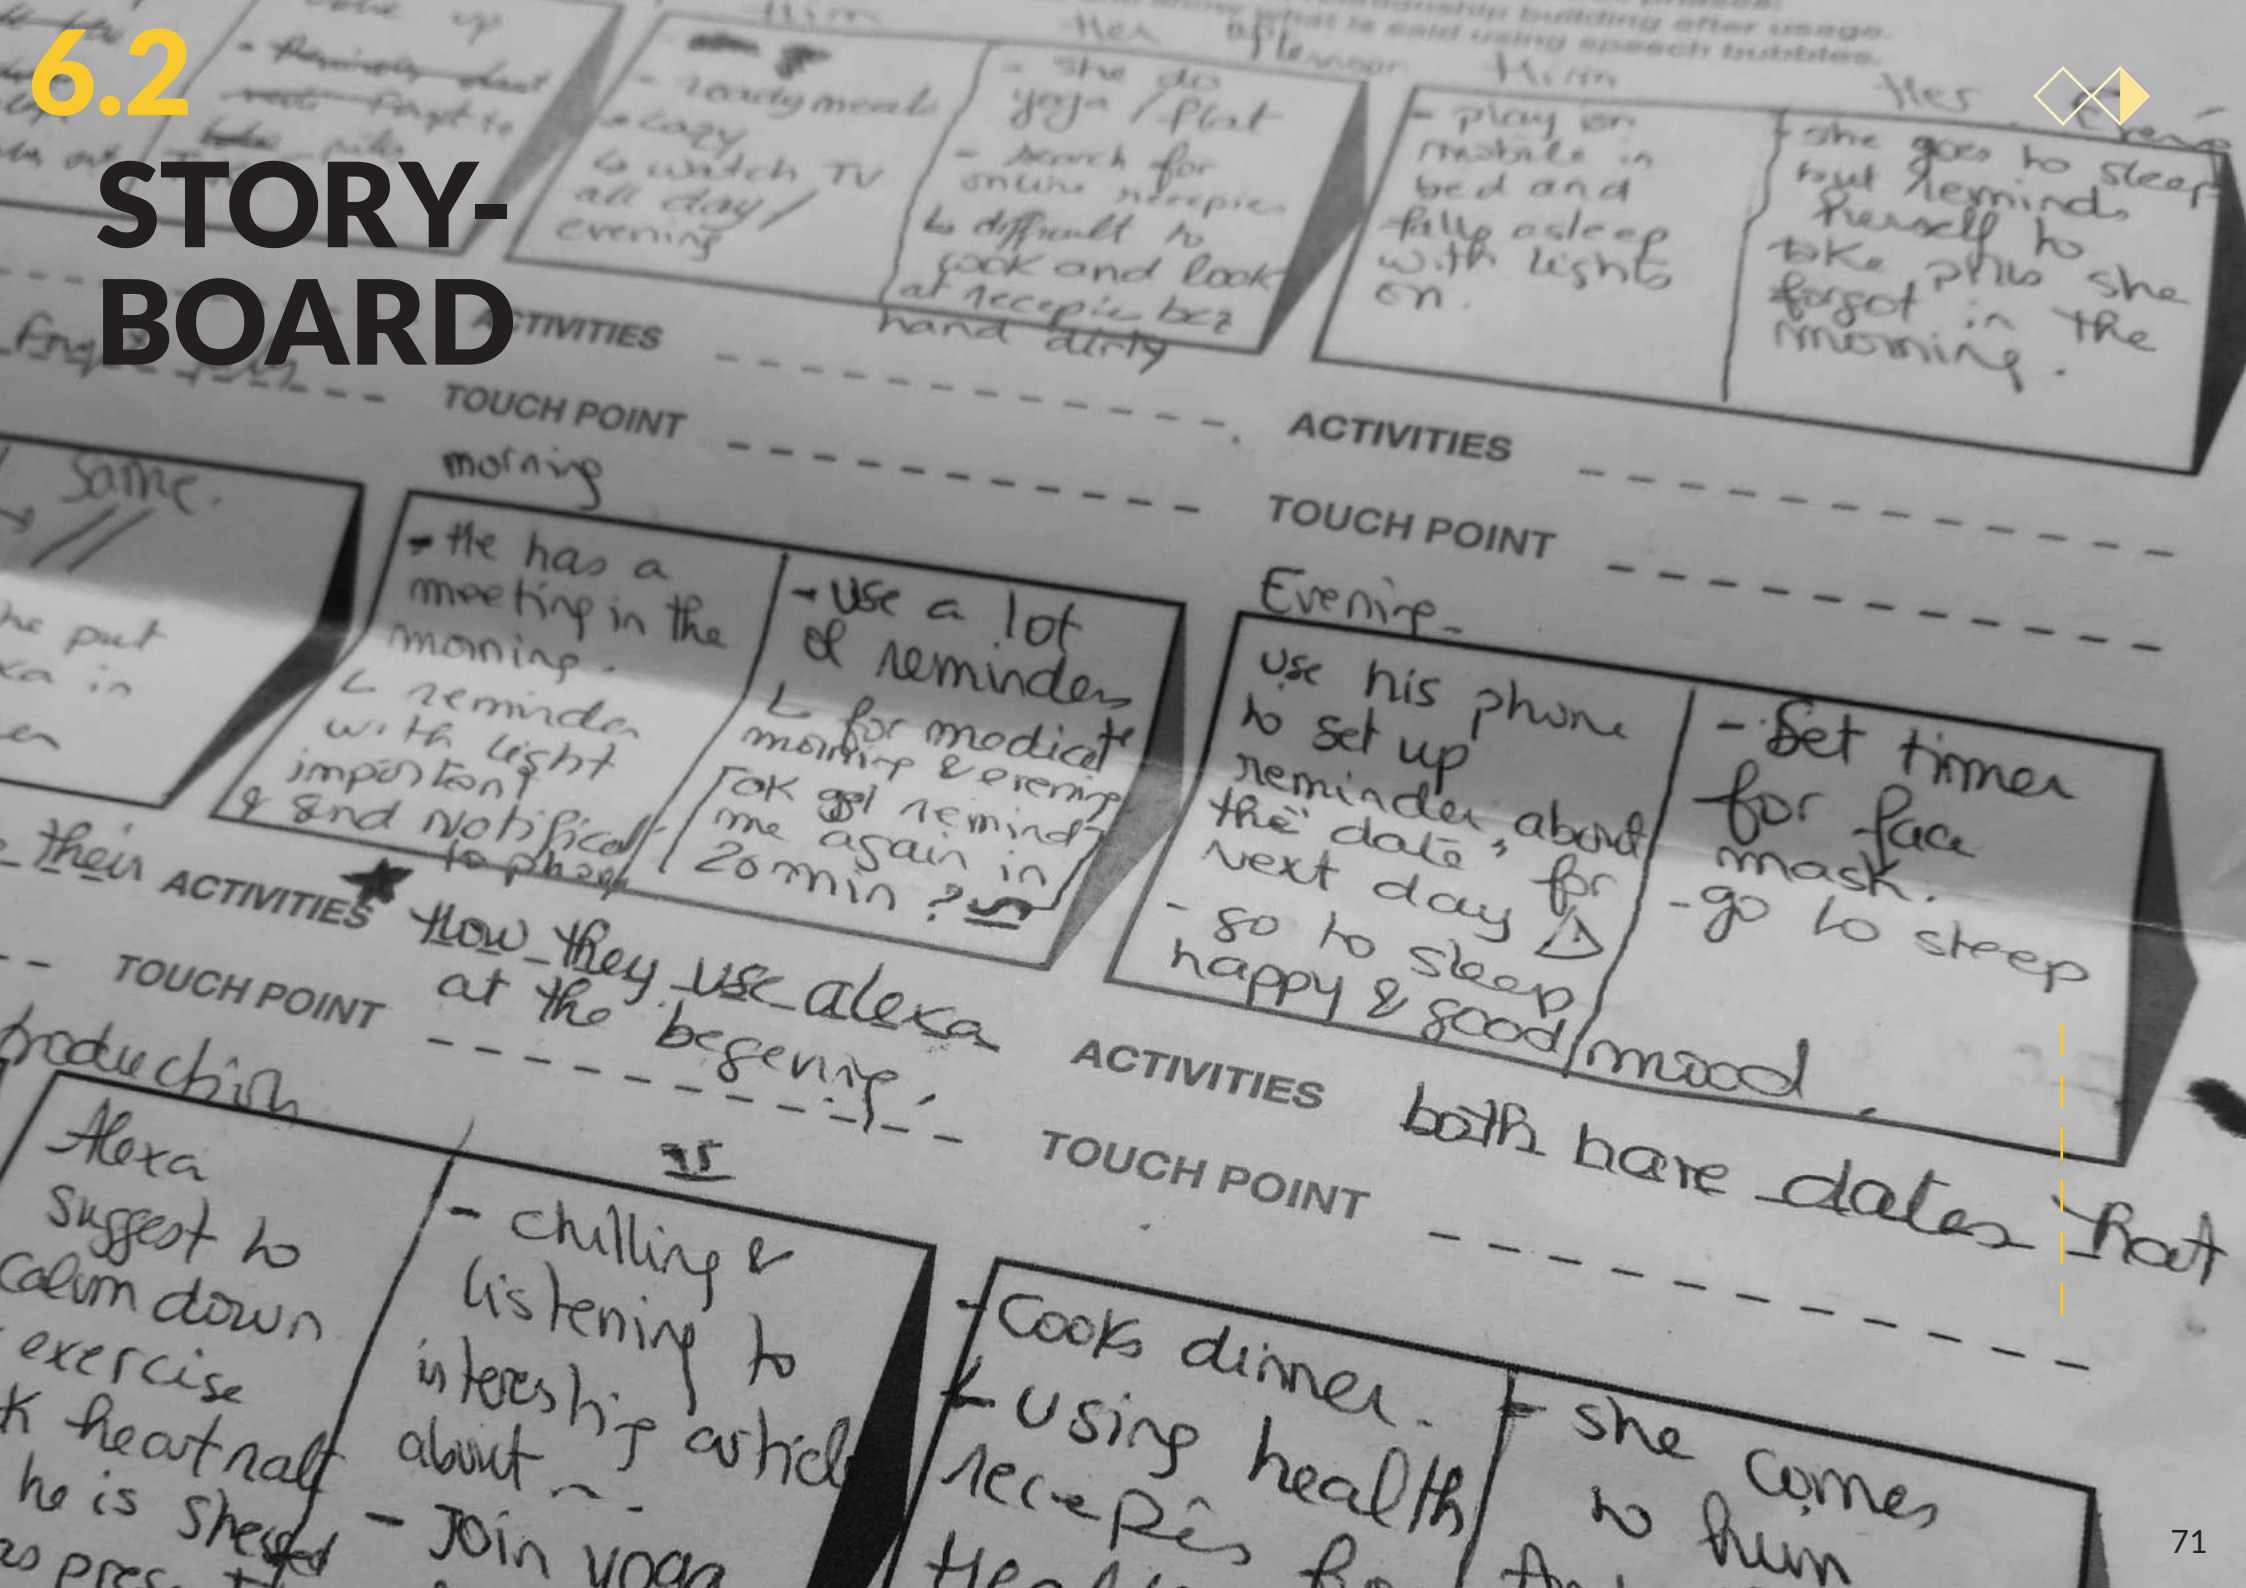 6.2
STORY-
BOARD
relationship building after usage.
what is said using speech bubbles.
Him
Her
afternoon
Him
Her
up
- ready meals
- Lazy
↳ watch TV
all day /
evening
- she do
yoga / flat
- search for
online recepies
↳ difficult to
cook and look
at recepie bcz
hand dirty
- play on
mobile in
bed and
falls asleep
with lights
on.
she goes to sleep
but remind
herself to
take pills she
forgot in the
morning.
ACTIVITIES
TOUCH POINT
ACTIVITIES
TOUCH POINT
same.
he put
in
morning
- He has a
meeting in the
morning.
↳ reminder
with light
important
& send notificat
to phone
- use a lot
of reminders
↳ for medicat
morning & evening
OK got remind
me again in
20 min ?
Evening
use his phone
to set up
reminder about
the "date" for
next day
- go to sleep
happy & good mood.
- Set timer
for face
mask.
- go to sleep
their
ACTIVITIES
★ How they use alexa
at the begening.
TOUCH POINT
ACTIVITIES
both have dates that
TOUCH POINT
Alexa
suggest to
calm down
exercise
he is
- chilling &
listening to
interesting article
about ~ -
- Join yoga
- Cooks dinner.
↳ using health
recepies
- she comes
to him
71